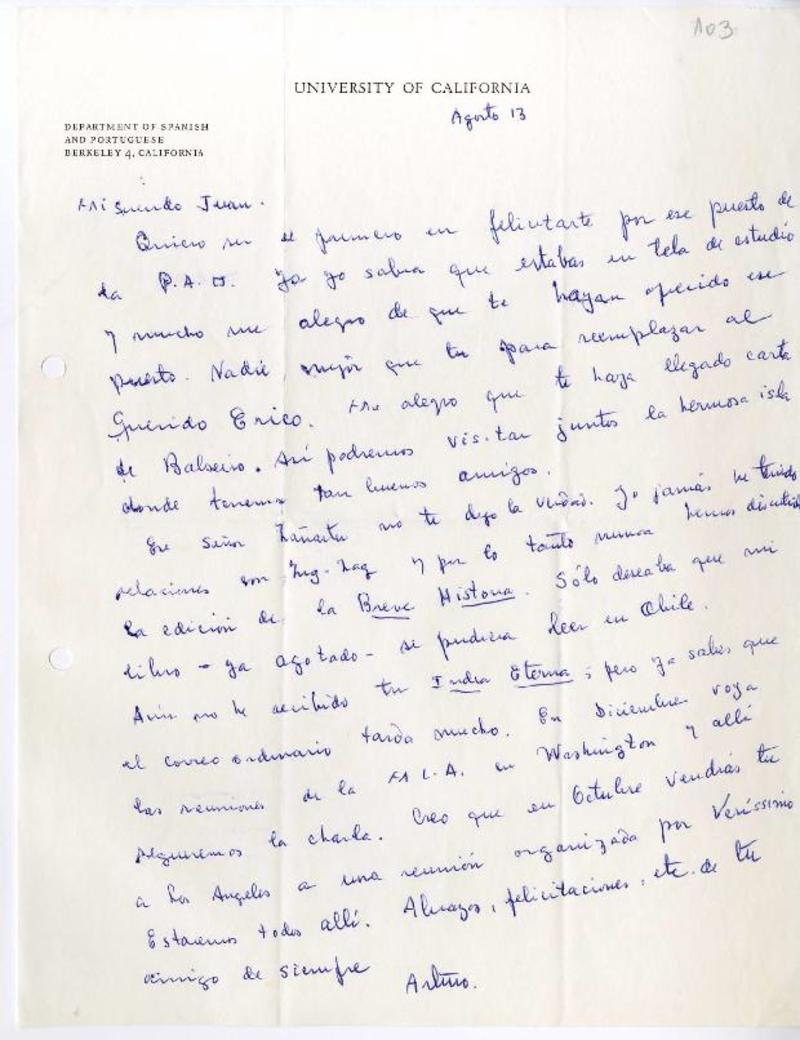 103
UNIVERSITY OF CALIFORNIA
Agosto 13
DEPARTMENT OF SPANISH
AND PORTUGUESE
BERKELEY 4, CALIFORNIA
Mi querido Juan.
Quiero ser el primero en felicitarte por ese puesto de
la P.A.U. Ya yo sabía que estabas en tela de estudio
y mucho me alegro de que te hayan ofrecido ese
puesto. Nadie mejor que tu para reemplazar al
querido Erico. Me alegro que te haya llegado carta
de Balseiro. Así podremos visitar juntos la hermosa isla
donde tenemos tan buenos amigos.
Ese Señor Zañartu no te dijo la verdad. Yo jamás he tenido
relaciones con Zig-Zag y por lo tanto nunca hemos discutido
la edición de la Breve Historia. Sólo deseaba que mi
libro - ya agotado - se pudiera leer en Chile.
Aún no he recibido tu India Eterna; pero ya sabes que
el correo ordinario tarda mucho. En Diciembre voy a
las reuniones de la M.L.A. en Washington y allí
seguiremos la charla. Creo que en Octubre vendrás tu
a Los Angeles a una reunión organizada por Veríssimo
Estaremos todos allí. Abrazos, felicitaciones, etc. de tu
amigo de siempre
Arturo.